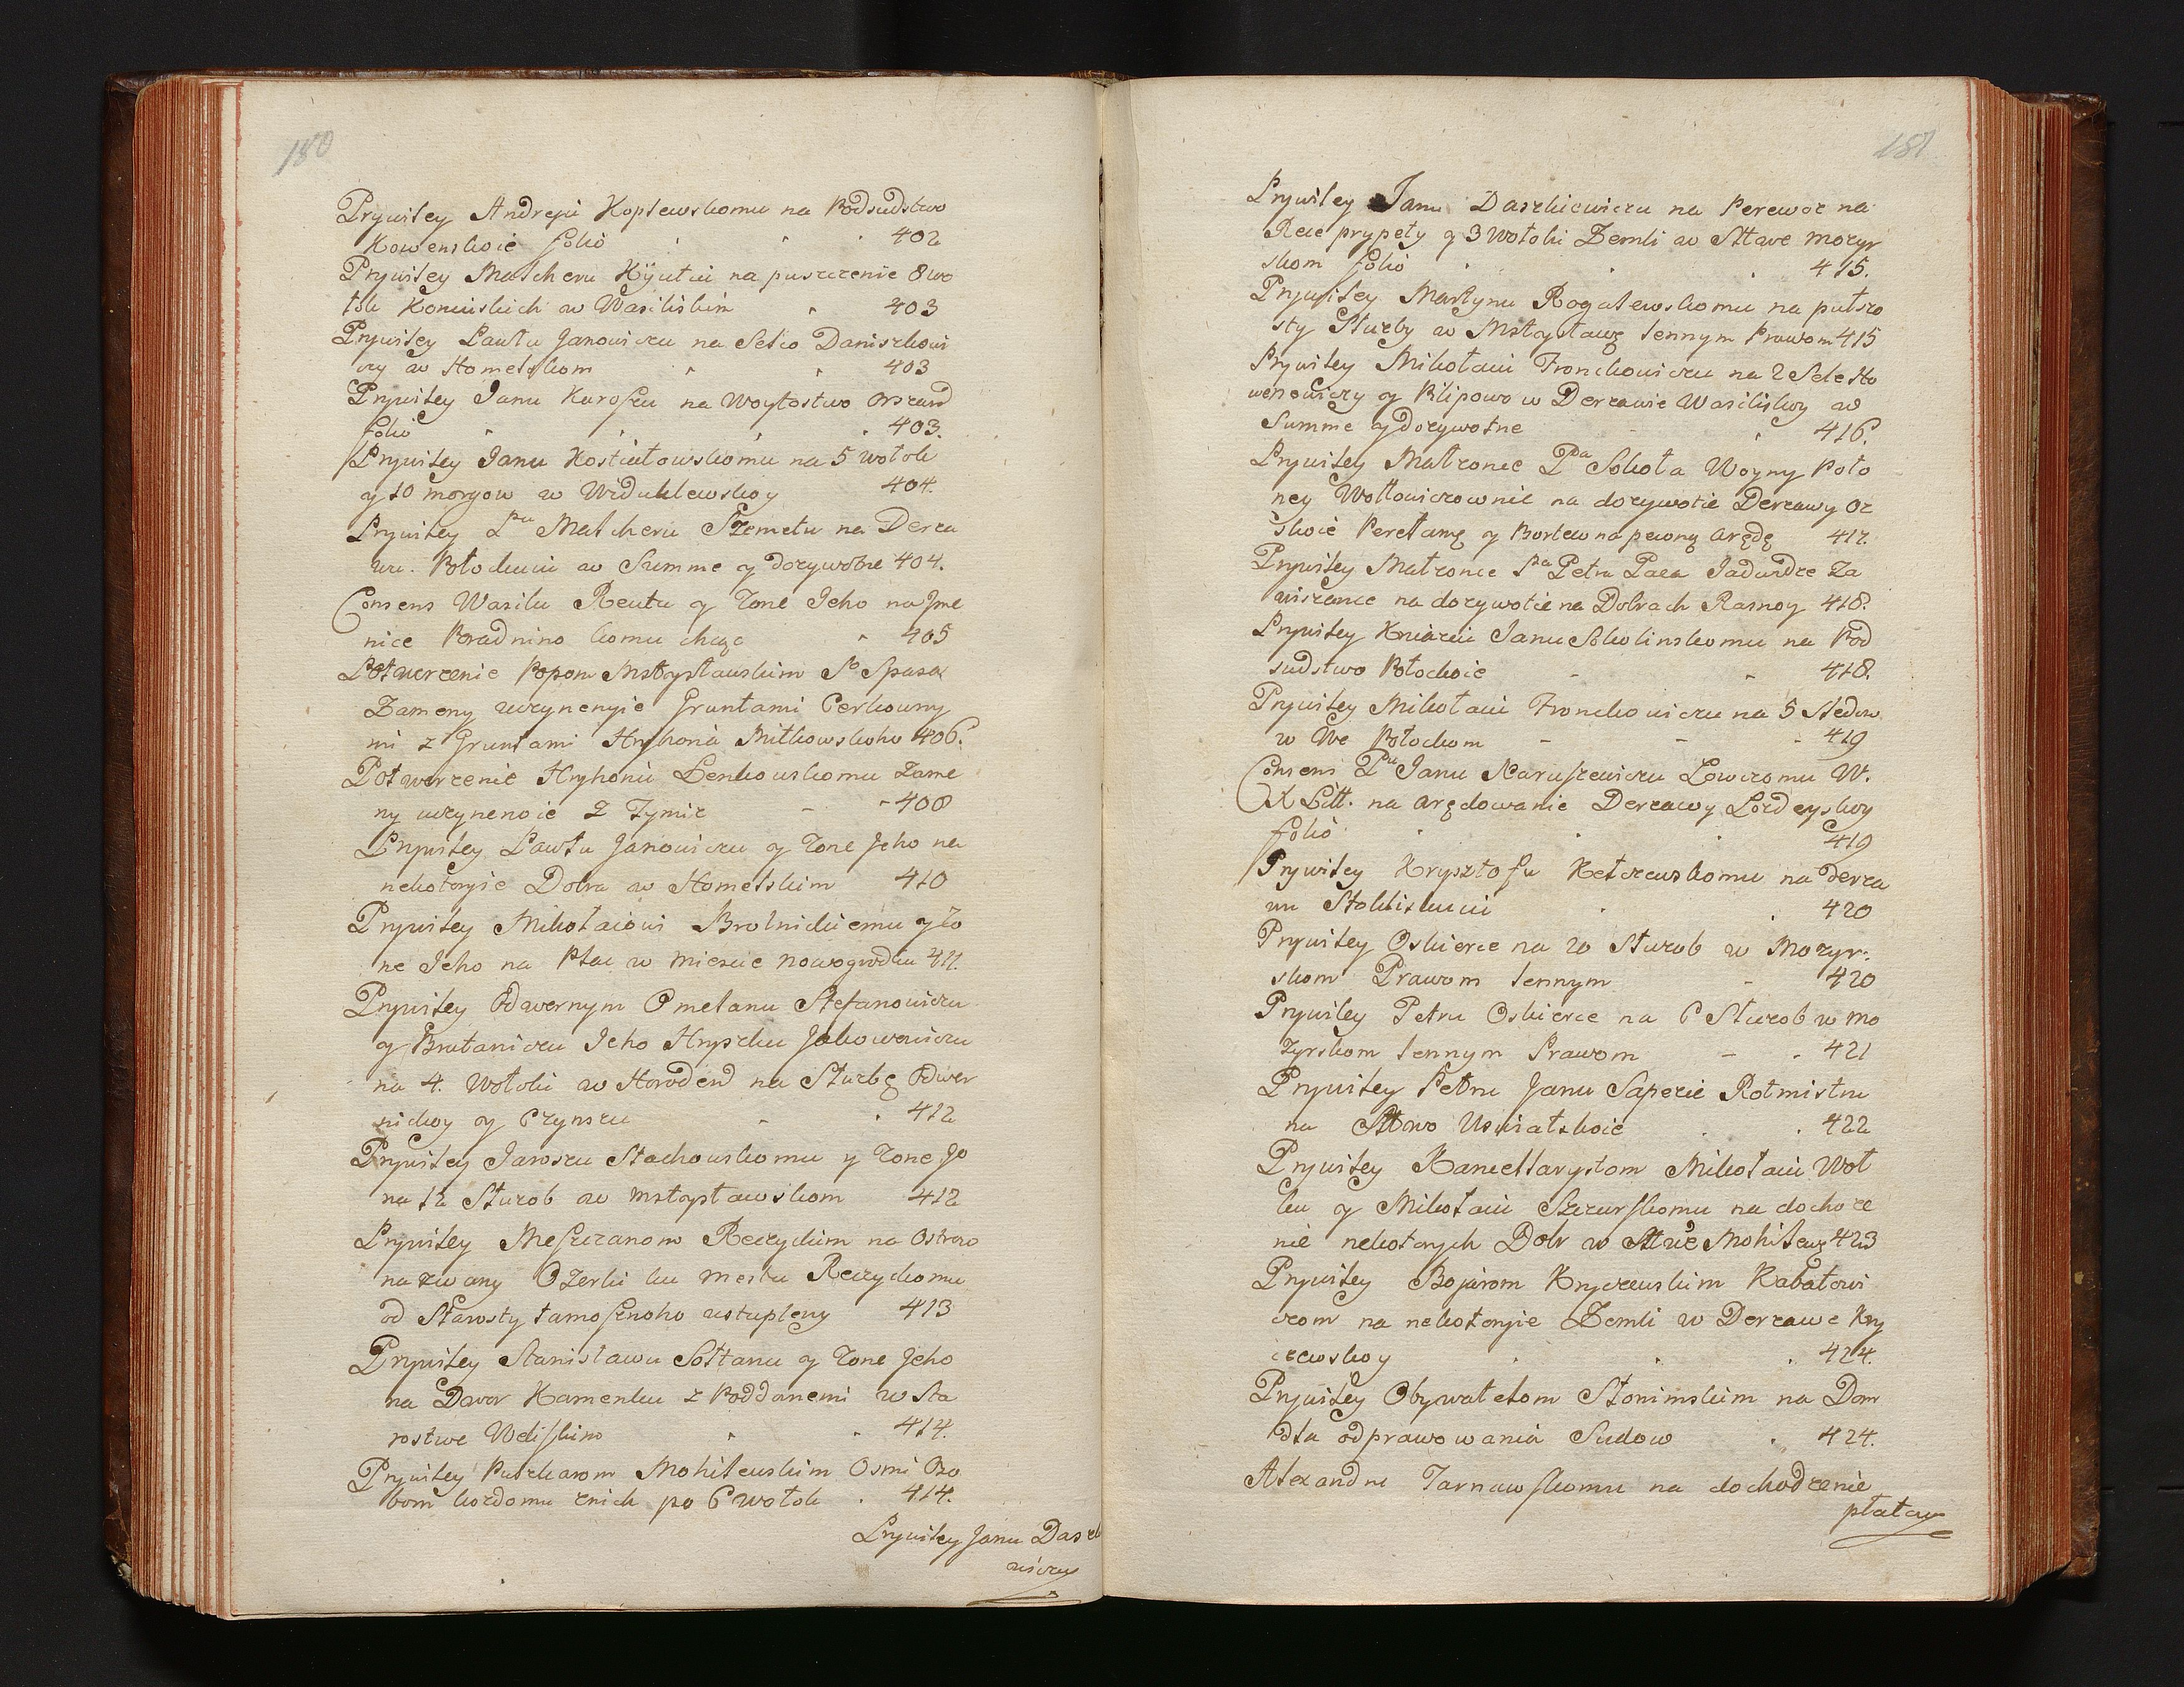 180
Prywiley Andreju Koptewskomu na Podsudstwo
Kowenskoie folio 402
Prywiley Malcheru na puszczenie 8 wo
łok Koniuskich w Wasiliskim 403
Prywiley Pawłu Janowiczu na Seło Daniszkowi
czy w Homelskom 403
Prywiley Janu Kurofzu na Woytostwo Orszansk
folio 403.
Prywiley Janu Kosciałowskomu na 5 wołok
y 10 morgow w Widuklewskoy 404.
Prywiley Pnu Malcheru Szemetu na Derza
wu Połockuiu w Summe y dozywotne 404.
Consens Wasilu Reutu y Zone Jeho na Jme
nice komu chcąc 405
Potwerzenie Popom Mstysławskim So Spasa
Zameny uczynenyie Gruntami Cerkowny
mi z Gruntami Hryhoria Mitkowskoho 406.
Potwerzenie Hryhoriu Lenkowskomu zame
ny uczynenoie z Tymiz 408
Prywiley Pawłu Janowiczu y Zone Jeho na
nekotoryie Dobra w Homelskim 410
Prywiley Mikołaiowi Brolnickiemu y Zo
ne Jeho na Plac w miescie nowogrodku 411.
Prywiley Odwernym Omelanu Stefanowiczu
y Brataniczu Jeho Hryszku Jakowowiczu
na 4. Wołoki w na Służbę Odwer
nickoy y Czynszu 412
Prywiley Jaroszu Stachowskomu y Zone Jo
na 12 Służob w mstysławskom 412
Prywiley Mefzczanom Reczyckim na Ostrow
nazwany Ozerki ku mestu Reczyckomu
od Starosty tamofznoho ustupleny 413
Prywiley Stanisławu Sołtanu y Zone Jeho
na Dwor Kamenku z Poddanemi w Sta
rostwe Welifkim 414.
Prywiley Puszkarom Mohilewskim Osmi Oso
bom kozdomu z nich po 6 wołok 414.
Prywiley Janu Daszk
wiczu
181
Prywiley Janu Daszkiewiczu na Perewoz na
Rece prypety y 3 wołoki Zemli w Sttwe mozyr
skom folio 415.
Prywiley Martynu Rogalewskomu na pułszo
sty Służby w Mstysławę lennym Prawom 415
Prywiley Mikołaiu Fronckowiczu na 2 Sele Ho
y Pilipowo w Derzawie Wasiliskoy w
Summe y dozywotne 416.
Prywiley Małzonce Pna Sokoła Woyny Poło
ney Wołłowiczownie na dozywotie Derzawy Oz
skoie Perełamę y Bortew na pewną arędę 417.
Prywiley Małzonce Pna Petra Paca Jadwidze Za
wiszance na dozywotie na Dobrach Rasnoy 418.
Prywiley Kniaziu Janu Sokolinskomu na Pod
sudstwo Połockoie 418.
Prywiley Mikołaiu Fronckowiczu na 5 Sledow
w We Połockom 419
Consens Pnu Janu Narufzewiczu Łowczomu W.
X Litt. na arędowanie Derzawy Łozdeyskoy
folio 419
Prywiley Krysztofu Kełczewskomu na Derza
wu Stokliskuiu 420
Prywiley Oskierce na 20 Służob w Mozyr:
skom Prawom lennym 420
Prywiley Petru Oskierce na 6 Służob w mo
zyrskom lennym Prawom 421
Prywiley Petru Janu Sapezie Rotmistru
na Sttwo Uswiatskoie 422
Prywiley Kancellarystom Mikołaiu Woł
ku y Mikołaiu Szczurfkomu na dochoze
nie nekotorych Dobr w Sttwe Mohilewę 423
Prywiley Bojarom Kryczewskim Kabałowi
czom na nekotoryie Zemli w Derzawe Kry
czewskoy 424.
Prywiley Obywatelom Słonimskim na Dom
dla odprawowania Sudow 424.
Alexandru Tarnawfkomu na dochodzenie
płatow